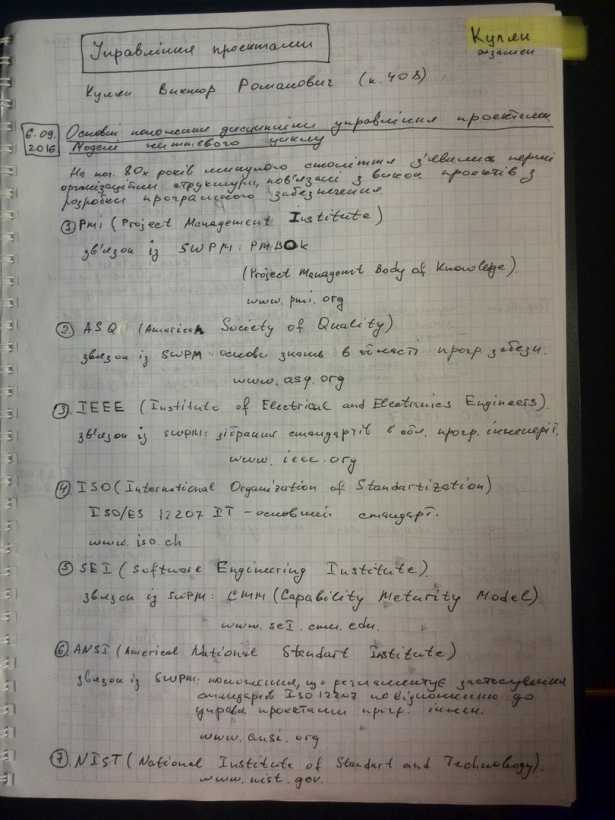 Управління проектами
Кулян
екзамен
Кулян Виктор Романович (к. 408)
6.09.
2016
Основні положення дисципліни управління проектами
Моделі життєвого циклу
На поч. 80х років минулого століття з'явились перші
організаційні структури, пов'язані з викон проектів з
розробки програмного забезпечення
① PMI (Project Management Institute)
зв'язок із SWPM: PMBOK
(Project Managemt Body of Knowledge).
www.pmi.org
② ASQ (American Society of Quality)
звязок із SWPM - основи знань в області прогр забезп.
www.asq.org
③ IEEE (Institute of Electrical and Electronics Engineers).
зв'язок із SWPM: зібрання стандартів в обл. прогр. інженерії.
www.ieee.org
④ ISO (International Organization of Standartization)
ISO/ES 12207 IT - основний стандарт.
www.iso.ch
⑤ SEI (Software Engineering Institute).
звязок із SWPM: CMM (Capability Meturity Model).
www.sei.cmu.edu.
⑥ ANSI (Americal National Standart Institute)
звязок із SWPM: положення, що регламентує застосування
стандартів ISO 12207 по відношенню до
управл проектами прогр. інжен.
www.ansi.org
⑦ NIST (National Institute of Standart and Technology).
www.nist.gov.